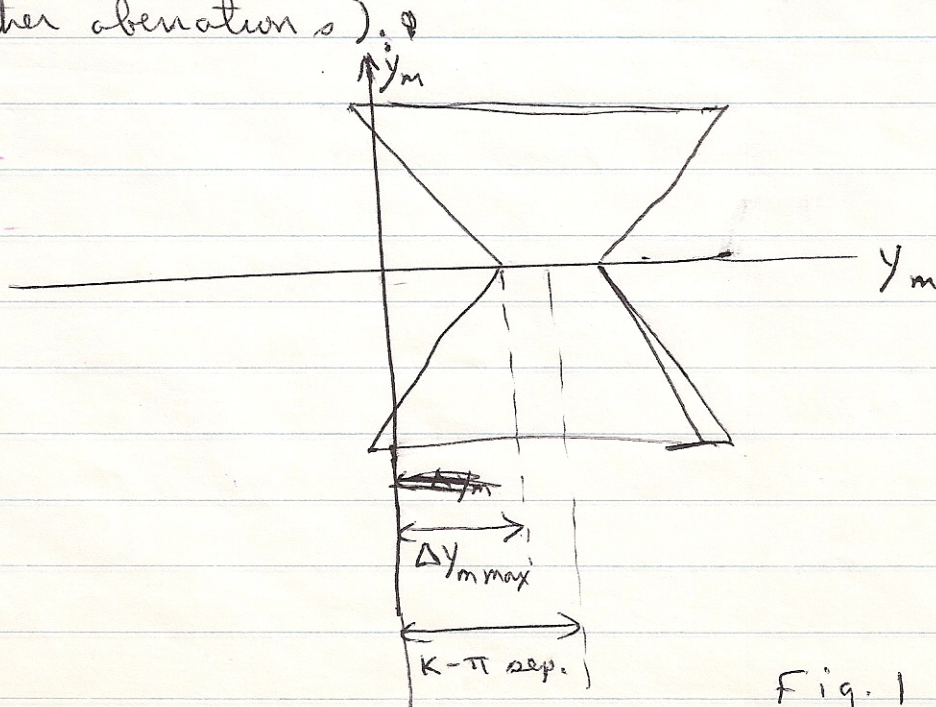 her aberrations).
ẏm
ym
Δym max
K-π sep.
Fig. 1